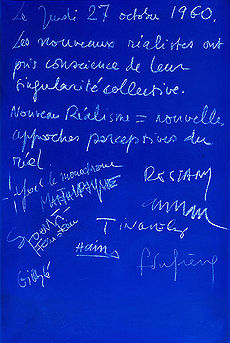 Le Jeudi 27 octobre 1960.
Les nouveaux réalistes ont
pris conscience de leur
singularité collective.
Nouveau Réalisme = nouvelles
approches perceptives du
réel.
Yves le monochrome
RESTANY
MARTIAL RAYSSE
Arman
SPOERRI
TINGUELY
Hains
dufrêne